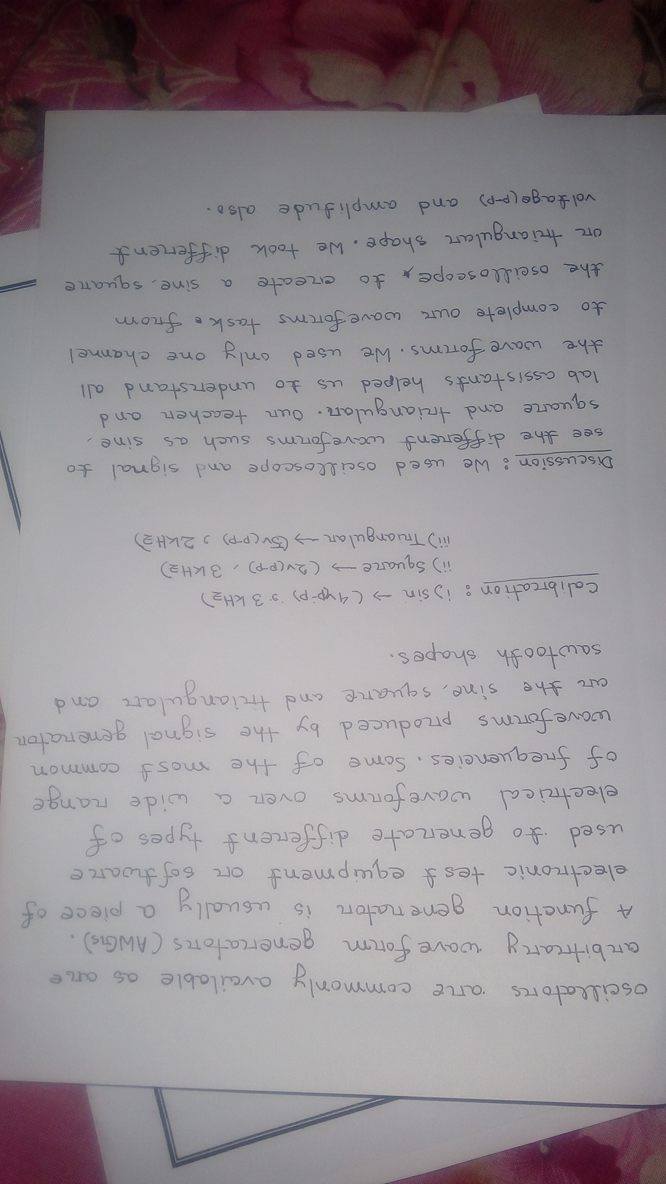 oscillators are commonly available as are
arbitrary wave form generators (AWGs).
A function generator is usually a piece of
electronic test equipment or software
used to generate different types of
electrical waveforms over a wide range
of frequencies. Some of the most common
waveforms produced by the signal generator
are the sine, square and triangular and
sawtooth shapes.
Calibration : i) sin → (4vp-p) , 3 kHz)
ii) Square → (2v(p-p) , 3kHz)
iii) Triangular → (5v(p-p) , 2kHz)
Discussion : We used oscilloscope and signal to
see the different waveforms such as sine,
square and triangular. Our teacher and
lab assistants helped us to understand all
the wave forms. We used only one channel
to complete our waveforms task. from
the oscilloscope, to create a sine, square
or triangular shape. We took different
voltage(p-p) and amplitude also.